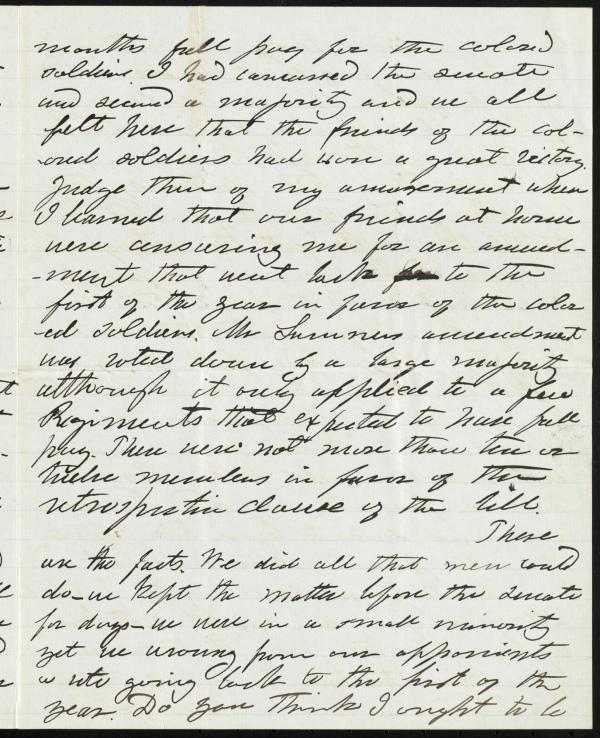 months full pay for the colored
soldiers I had canvassed the senate
and secured a majority and we all
felt here that the friends of the col-
-ored soldiers had won a great victory.
Judge then of my amazement when
I learned that our friends at home
were censuring me for an amend-
-ment that went back to the
first of the year in favor of the color
-ed soldiers. Mr Sumners amendment
was voted down by a large majority
although it only applied to a few
Regiments that expected to have full
pay. There were not more than ten or
twelve members in favor of the
retrospective clause of the bill.
These
are the facts. We did all that men could
do—we kept the matter before the senate
for days—we were in a small minority
yet we wrung from our opponents
a vote going back to the first of the
year. Do you think I ought to be